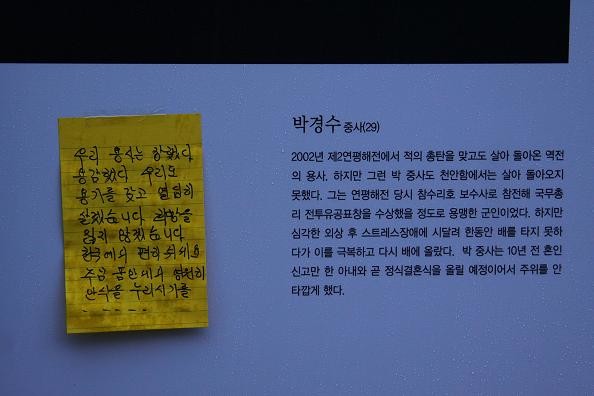 우리 용사는 강했다
용감했다 우리도
용기를 갖고 열심히
살겠습니다 희망을
잃지 않겠습니다
한국에서 편히 쉬세요
주님 품안에서 영원히
안식을 누리시기를
박경수 중사(29)
2002년 제2연평해전에서 적의 총탄을 맞고도 살아 돌아온 역전
의 용사. 하지만 그런 박 중사도 천안함에서는 살아 돌아오지
못했다. 그는 연평해전 당시 참수리호 보수사로 참전해 국무총
리 전투유공표창을 수상했을 정도로 용맹한 군인이었다. 하지만
심각한 외상 후 스트레스장애에 시달려 한동안 배를 타지 못하
다가 이를 극복하고 다시 배에 올랐다. 박 중사는 10년 전 혼인
신고만 한 아내와 곧 정식결혼식을 올릴 예정이어서 주위를 안
타깝게 했다.